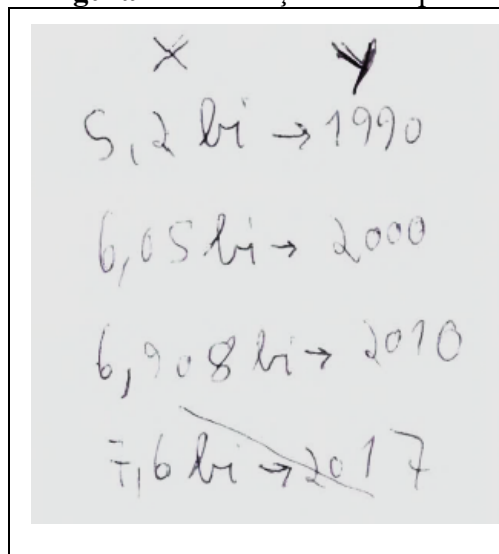 x y
5,2 bi → 1990
6,05 bi → 2000
6,908 bi → 2010
7,6 bi → 2017